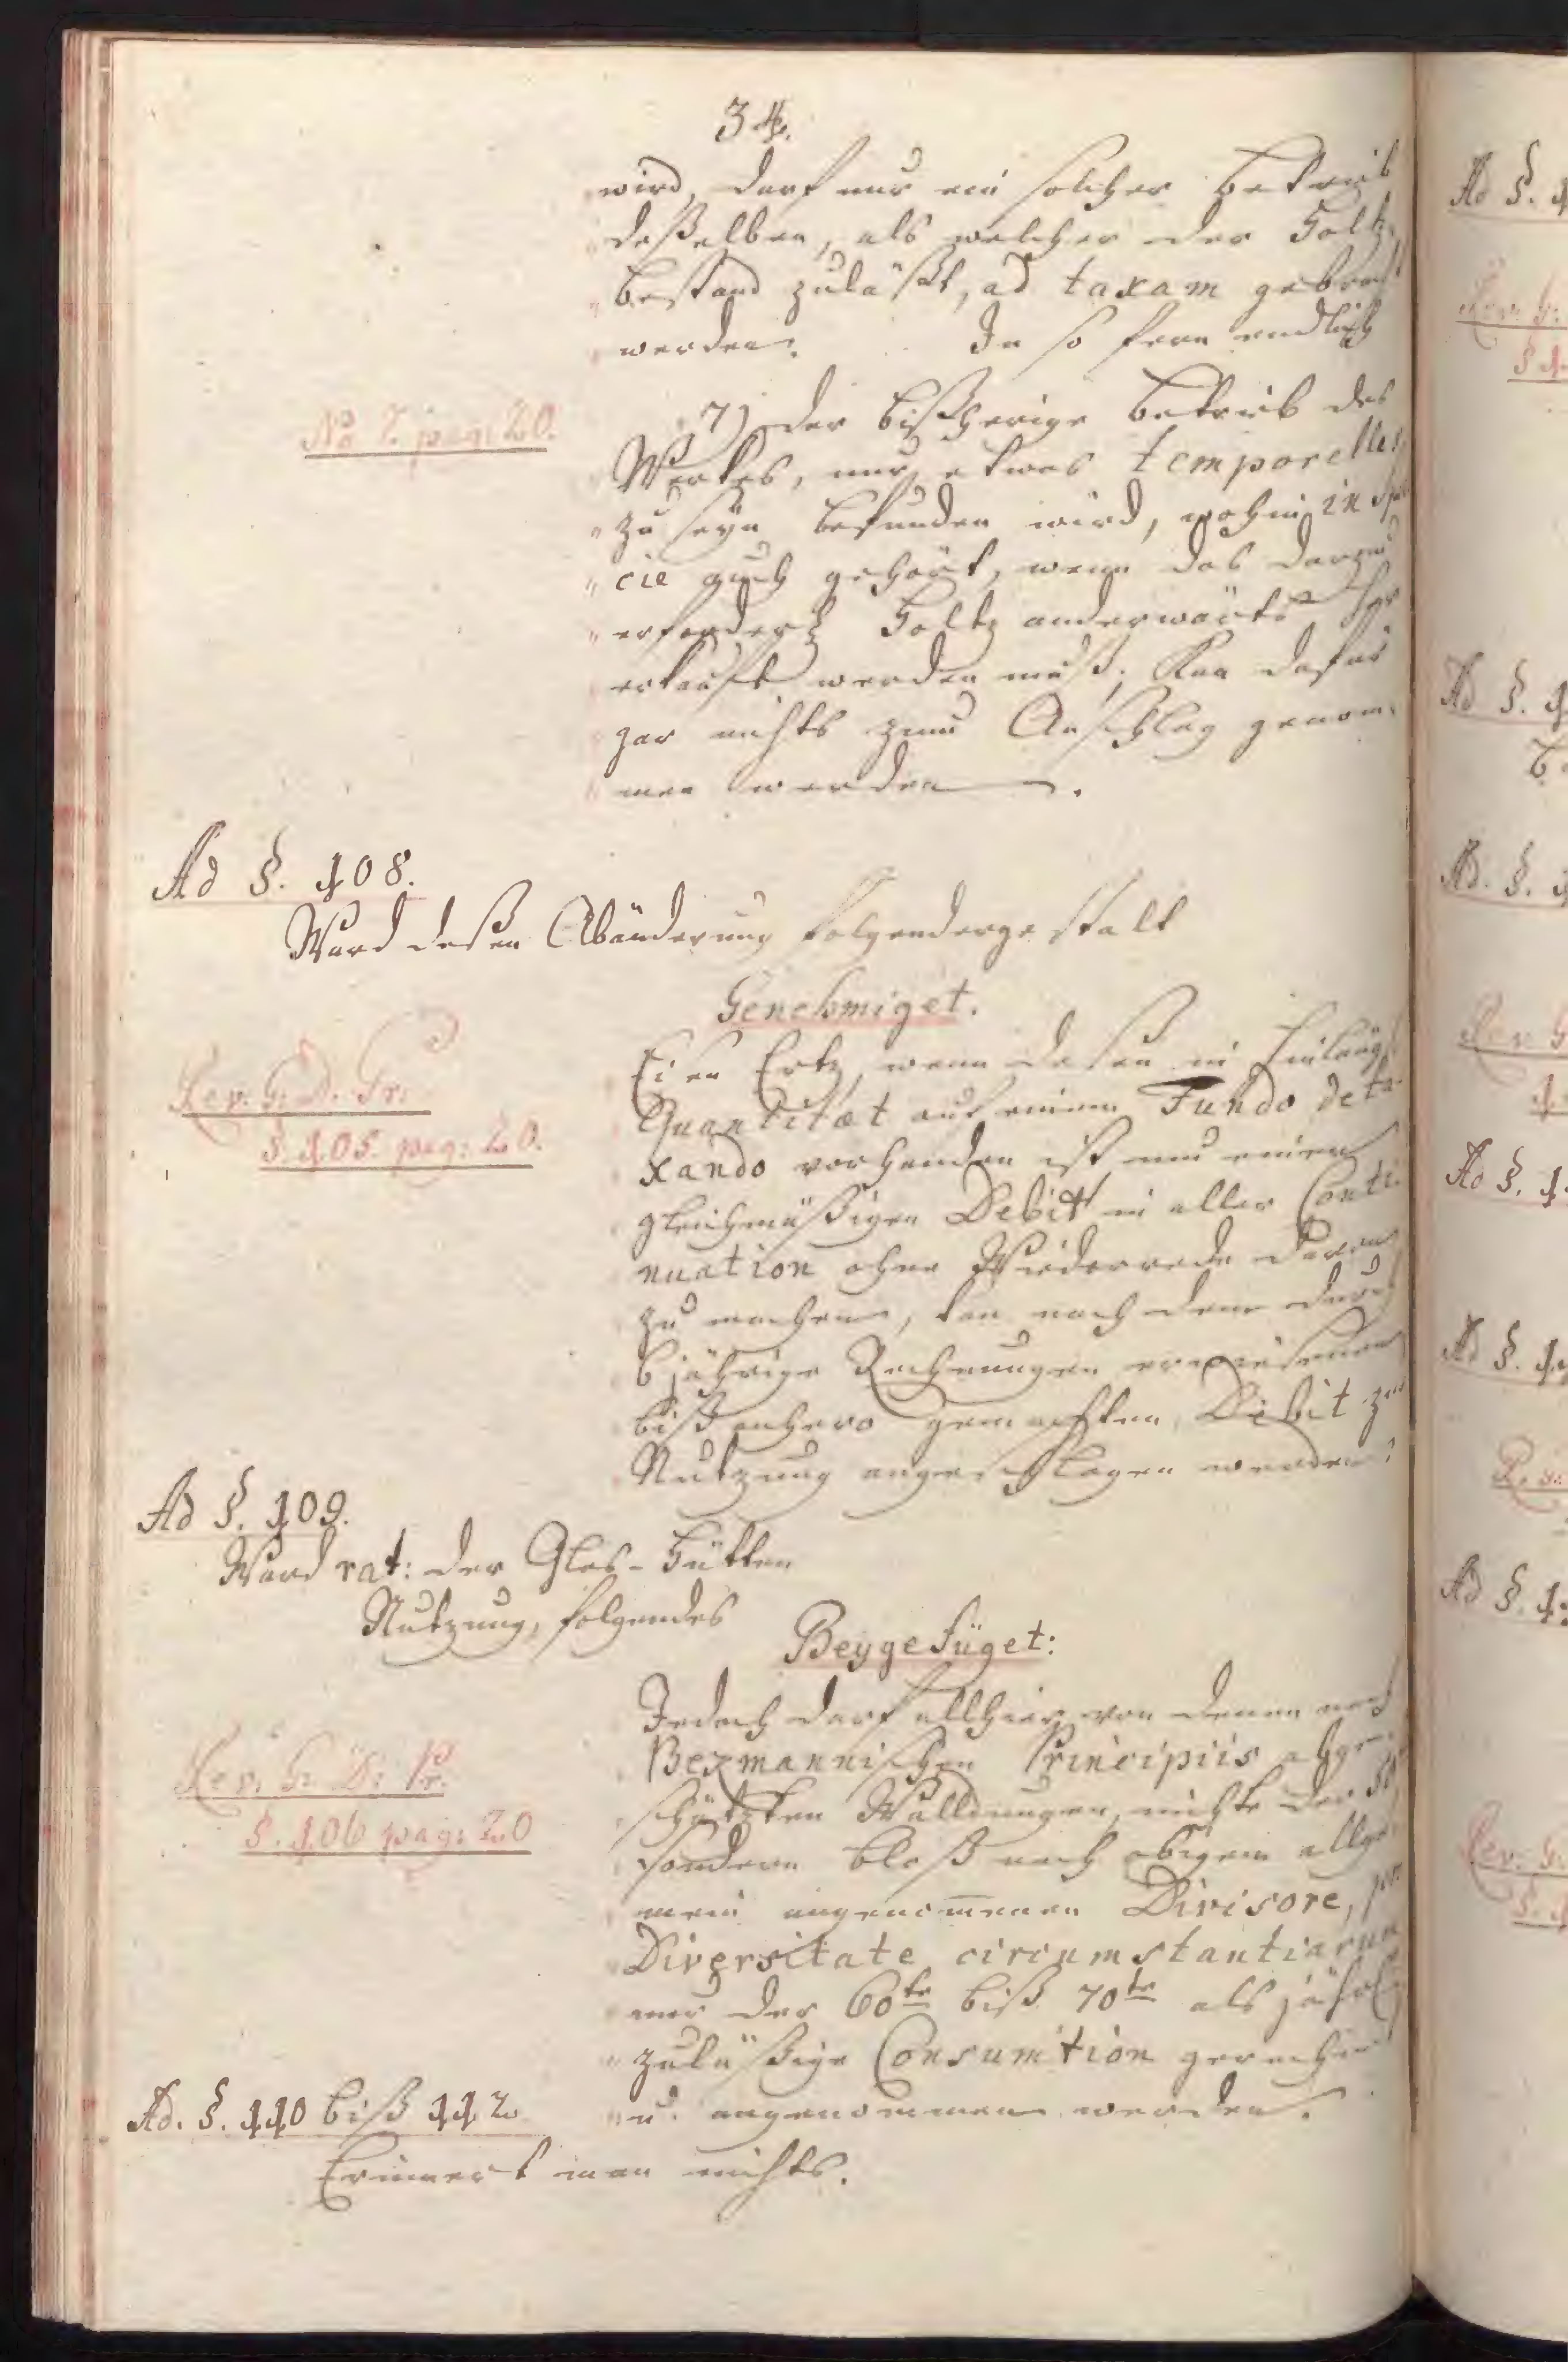 34.
wird, darf nur ein solcher Betrieb
deßelben, als welcher der Holtz-
bestand zuläßt, ad taxam gebracht
werden. In so fern endlich
No 7. pag: 20.
7) der bißherige Betrieb des
Werkes, nur etwas temporelles
zu seyn befunden wird, wohin in spe
cie auch gehört, wenn das darzu
erforderl. Holtz anderwärts her
erkauft werden muß; Kan dafür
gar nichts zum Anschlag genom-
men werden.
Ad §. 108.
Ward deßen Abänderung folgendergestalt
Genehmiget.
Rev: G: D: Pr:
§. 105. pag: 20.
Eisen Ertz, wenn deßen in hinlängl.
Quantitæt auf einem Fundo deta-
xando vorhanden ist, um einen
gleichmäßigen Debit in aller Conti-
nuation ohne Wiederrede davon
zu machen, kan nach dem durch
6 jährige Rechnungen erwiesenen
biß anhero gemachten Debit zur
Nutzung angeschlagen werden.
Ad §. 109.
Ward rat: der Glas-Hütten
Nutzung, folgendes
Beygefüget:
Rev: G: D: Pr:
§. 106 pag: 20
Jedoch darf allhier von denen nach
Beymannischen Principiis abge-
schätzten Walldungen, nicht der
sondern bloß nach obigem allge-
mein angenommenen Divisore, pro
Diversitate circumstantiarum
nur der 60te biß 70te als jährl.
zuläßige Consumtion gerechnet
u. angenommen werden.
Ad. §. 110 biß 112.
Erinnert man nichts.